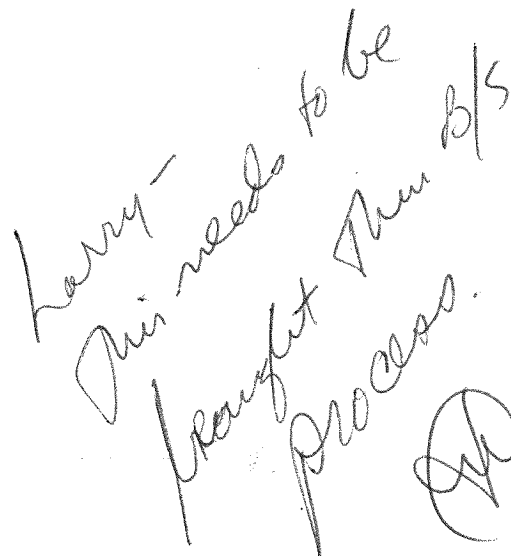 Larry -
This needs to be
brought Thru B/S
process.